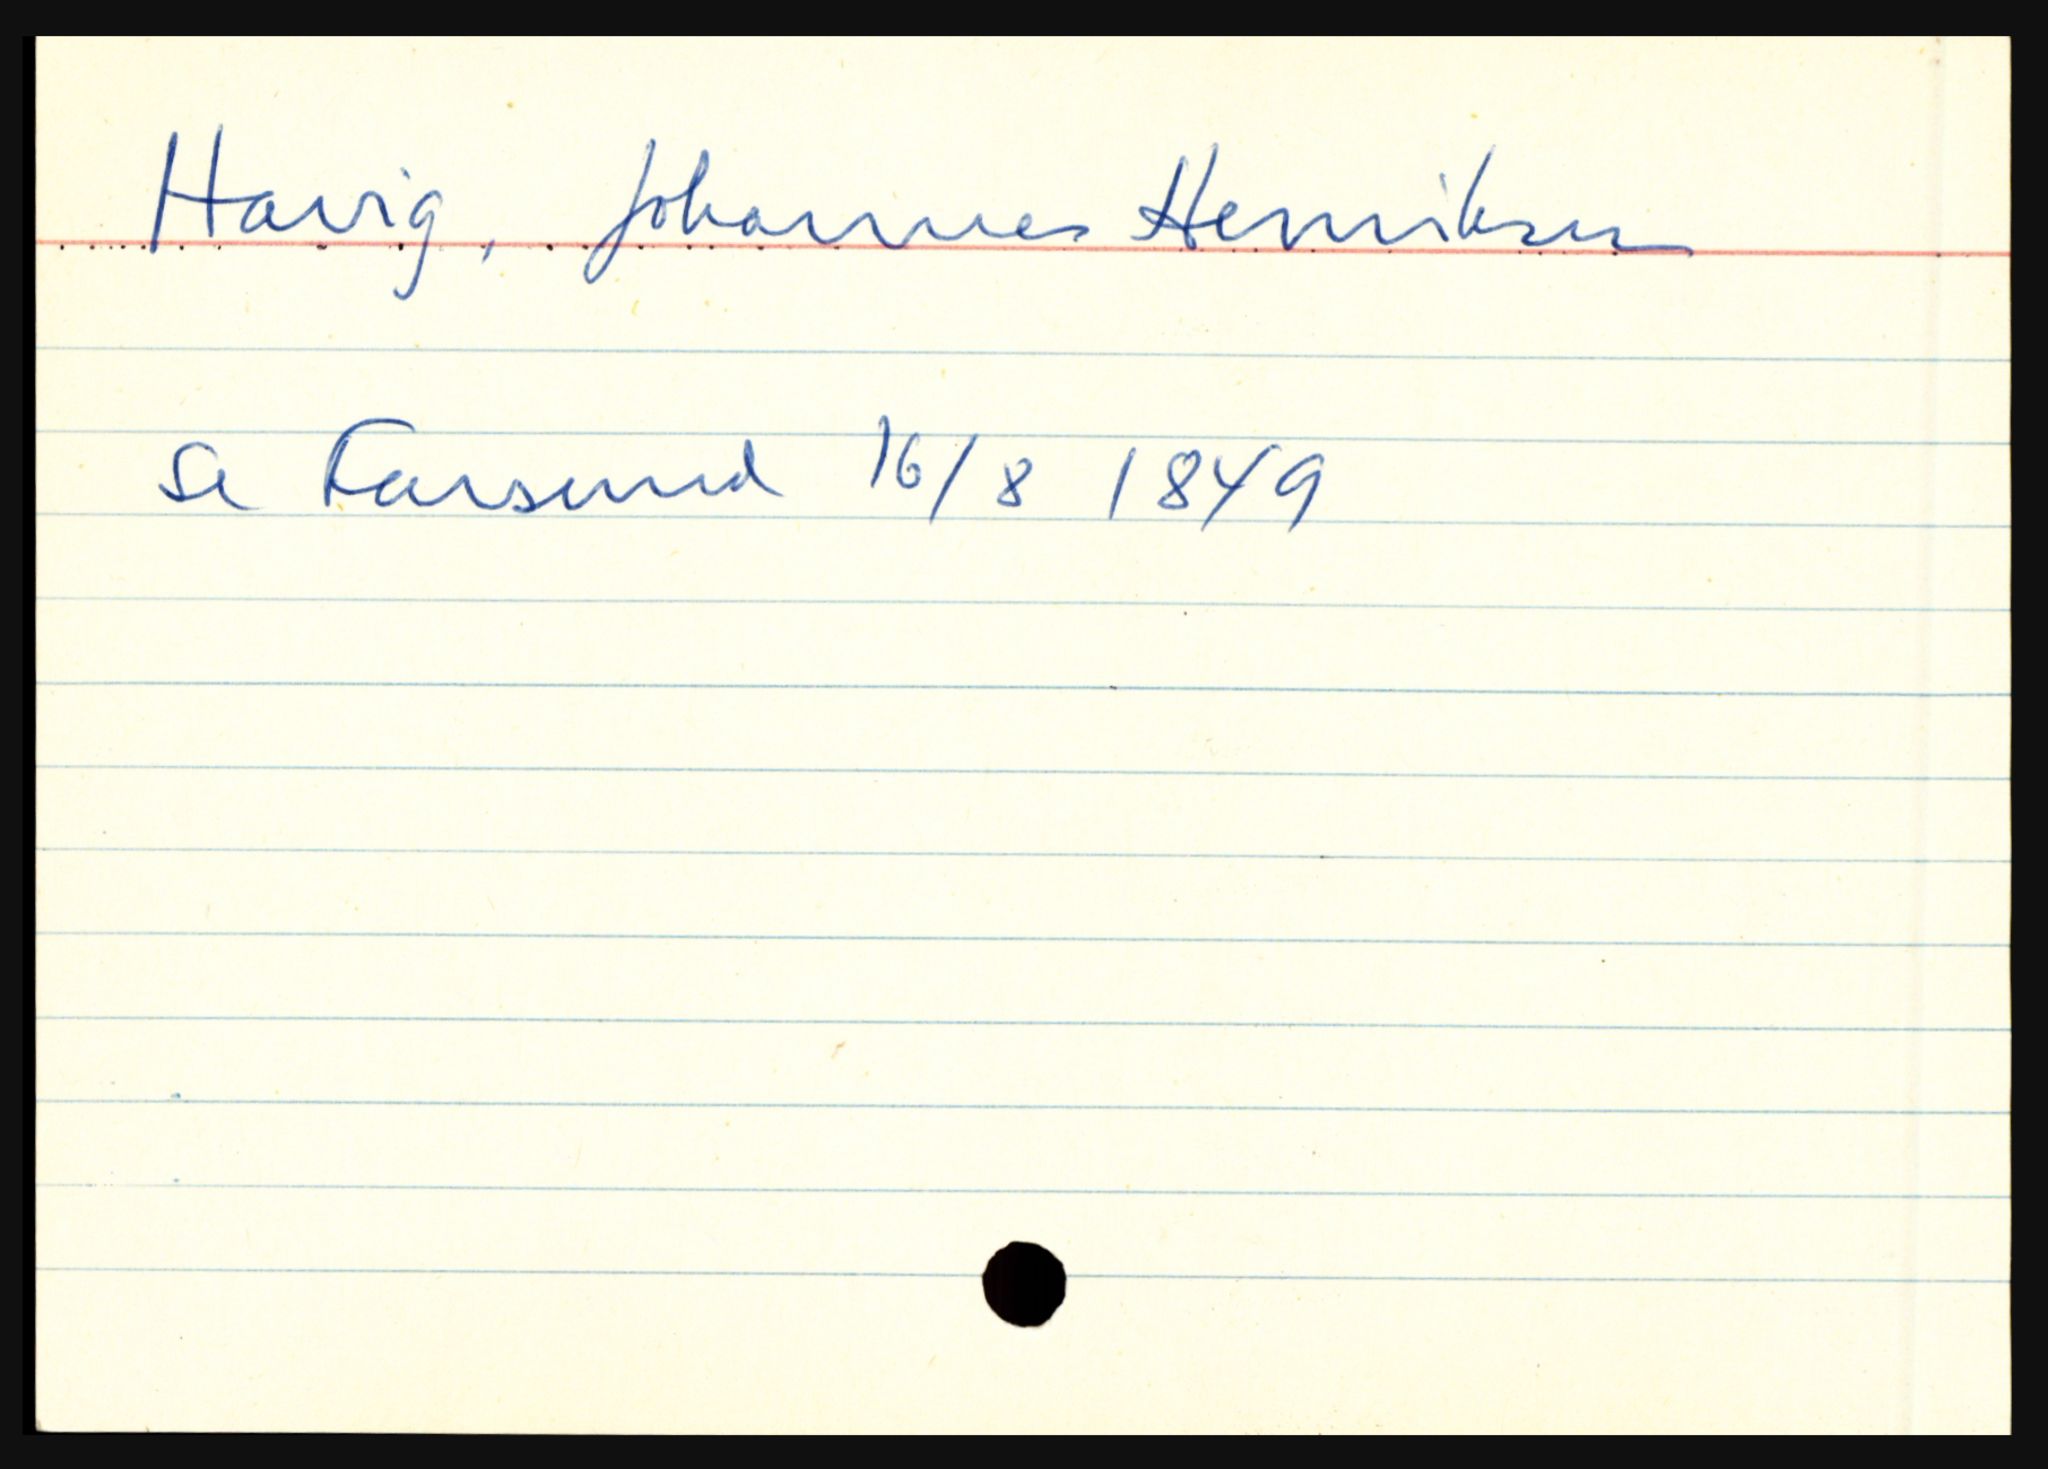 Havig, Johannes Henriksen
se Farsund 16/8 1849